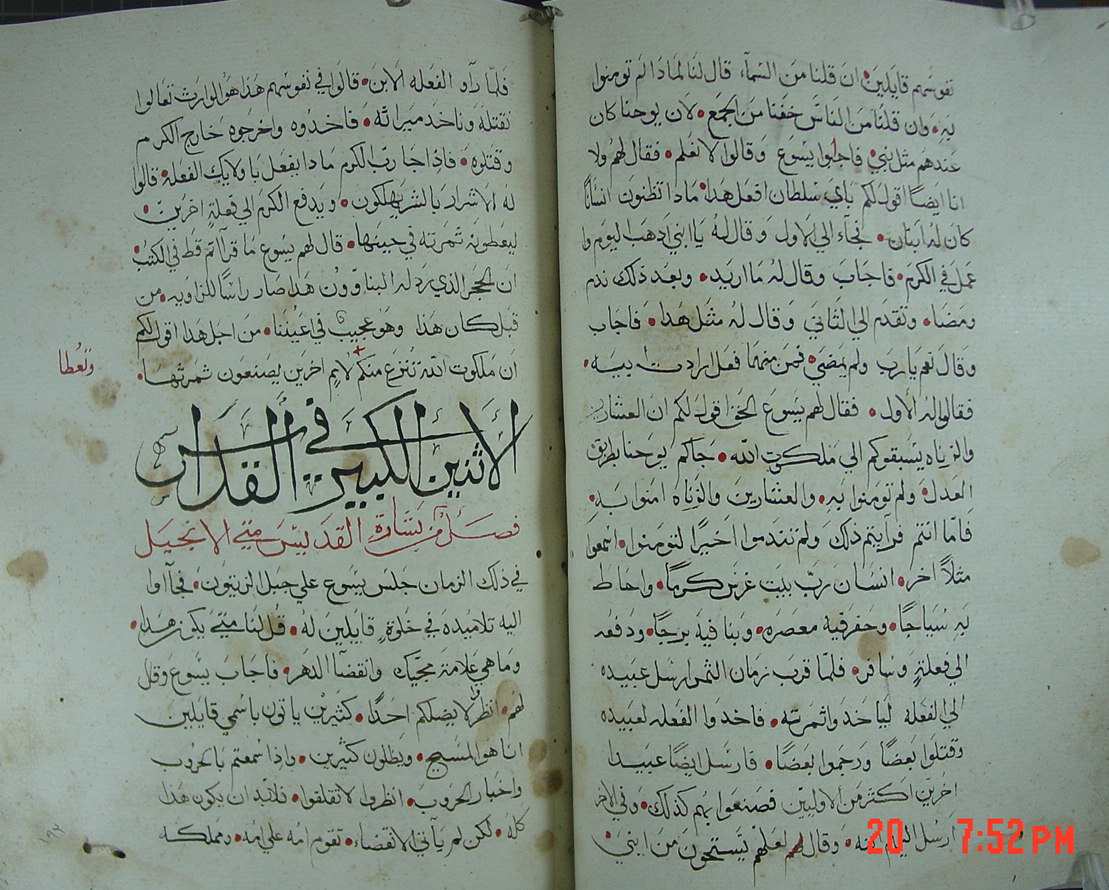 نفوسهم قايلين • ان قلنا من السمآء قال لنا لماذا لم تومنوا
به • وان قلنا من الناس خفنا من الجمع • لان يوحنا كان
عندهم مثل نبي • فاجابوا يسوع وقالوا لا نعلم • فقال لهم ولا
انا ايضاً اقول لكم باي سلطان افعل هدا • مادا تظنون انسانا
كان له ابنان • فجاء الي الاول وقال له يا ابني ادهب اليوم وا
عمل في الكرم • فاجاب وقال له ما اريد • وبعد ذلك ندم
ومضا • وتقدم الي الثاني وقال له مثل هدا • فاجاب
وقال نعم يا رب ولم يمضي • فمن منهما فعل ارادت ابيه •
فقالوا له الاول • فقال لهم يسوع الحق اقول لكم ان العشارين
والزناه يسبقوكم الي ملكوت الله • جاكم يوحنا بطريق
العدل • ولم تومنوا به • والعشارين والزناه امنوا به •
فاما انتم فرايتم ذلك ولم تندموا اخيرا لتومنوا • اسمعوا
مثلاً اخر • انسان رب بيت غرس كرماً • واحاط
به سياجاً • وحفر فيه معصره • وبنا فيه برجاً • ودفعه
الي فعلة وسافر • فلما قرب زمان الثمر ارسل عبيده
الي الفعله لياخدوا ثمرته • فاخدوا الفعله لعبيده
وقتلوا بعضاً ورجموا بعضاً • فارسل ايضاً عبيدا
اخرين اكثر من الاوليين فصنعوا بهم كذلك • وفي الاخر
ارسل اليهم ابنه • وقال لهم لعلهم يستحون من ابني •
20 7:52 PM
فلما رآو الفعله الابن • قالوا في نفوسهم هذا هو الوارث تعالوا
نقتله وناخد ميراثه • فاخدوه واخرجوه خارج الكرم
وقتلوه • فادا جا رب الكرم مادا يفعل باولايك الفعله • قالوا
له الاشرار بالشر يهلكون • ويدفع الكرم الي فعلة اخرين •
ليعطونه ثمرته في حينها • قال لهم يسوع ما قراتم قط في الكتب
ان الحجر الذي ردله البناوون هدا صار راسًا للزاويه • من
قبل كان هذا وهو عجيب في اعيننا • من اجل هدا اقول لكم
ان ملكوت الله تنزع منكم لامم اخرين يصنعون ثمرتها •
وتعطا
الاثنين الكبير في القداس
فصل من بشارة القديس متي الانجيل
في ذلك الزمان جلس يسوع علي جبل الزيتون • فجآاوا
اليه تلاميده في خلوة قايلين له • قل لنا متي يكون هدا •
وما هي علامة مجيك وانقضآ الدهر • فاجاب يسوع وقال
لهم • انظروا لا يضلكم احدا • كثيرين ياتون باسمي قايلين
انا هو المسيح • ويظلون كثيرين • وادا سمعتم بالحروب
واخبار الحروب • انظروا لا تقلقوا • فلابد ان يكون هدا
كله • لكن لم يآتي الانقضاء • تقوم امه علي امه • ومملكه